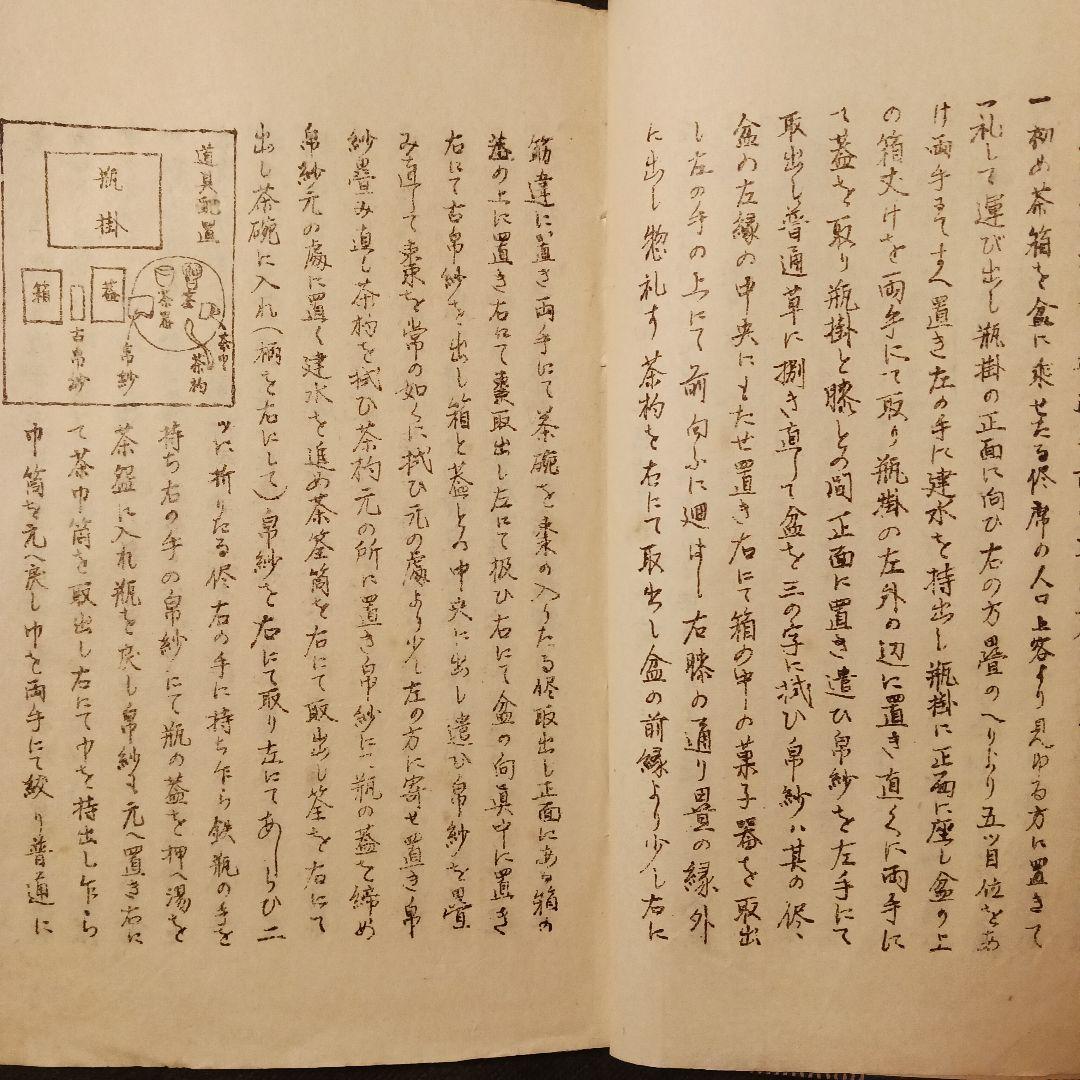 一初め茶箱を盆に乗せたる侭席の入口上客より見ゆる方に置きて
一礼して運び出し瓶掛の正面に向ひ右の方畳のへりより五ツ目位をあ
け両手るてすへ置き左の手に建水を持出し瓶掛に正面に座し盆の上
の箱丈けを両手にて取り瓶掛の左外の辺に置き直くに両手に
て蓋を取り瓶掛と膝との間正面に置き遣ひ帛紗を左手にて
取出し普通草に捌き直して盆を三の字に拭ひ帛紗ハ其の侭
盆の左縁の中央にもたせ置き右にて箱の中の菓子器を取出
し左の手の上にて前向ふに廻はし右膝の通り畳の縁外
に出し惣礼す茶杓を右にて取出し盆の前縁より少し右に
筋違に置き両手にて茶碗を棗の入りたる侭取出し正面にある箱の
蓋の上に置き右にて棗取出し左にて扱ひ右にて盆の向真中に置き
右にて古帛紗を出し箱と蓋との中央に出し遣ひ帛紗を畳
み直して棗を常の如くに拭ひ元の處より少し左の方に寄せ置き帛
紗畳み直し茶杓を拭ひ茶杓元の所に置き帛紗に瓶の蓋を締め
帛紗元の處に置く建水を進め茶筌筒を右にて取出し筌を右にて
出し茶碗に入れ(柄を右にして)帛紗を右にて取り左にてあしらひ二
ツに折りたる侭右の手に持ち乍ら鉄瓶の手を
持ち右の手の帛紗にて瓶の蓋を押へ湯を
茶盌に入れ瓶を戻し帛紗も元へ置き右に
て茶巾筒を取出し右にて巾を持出し乍ら
巾筒を元へ戻し巾を両手にて絞り普通に
道具配置
瓶掛
箱
蓋
古帛紗
帛紗
茶器
茶筌
茶巾
茶杓